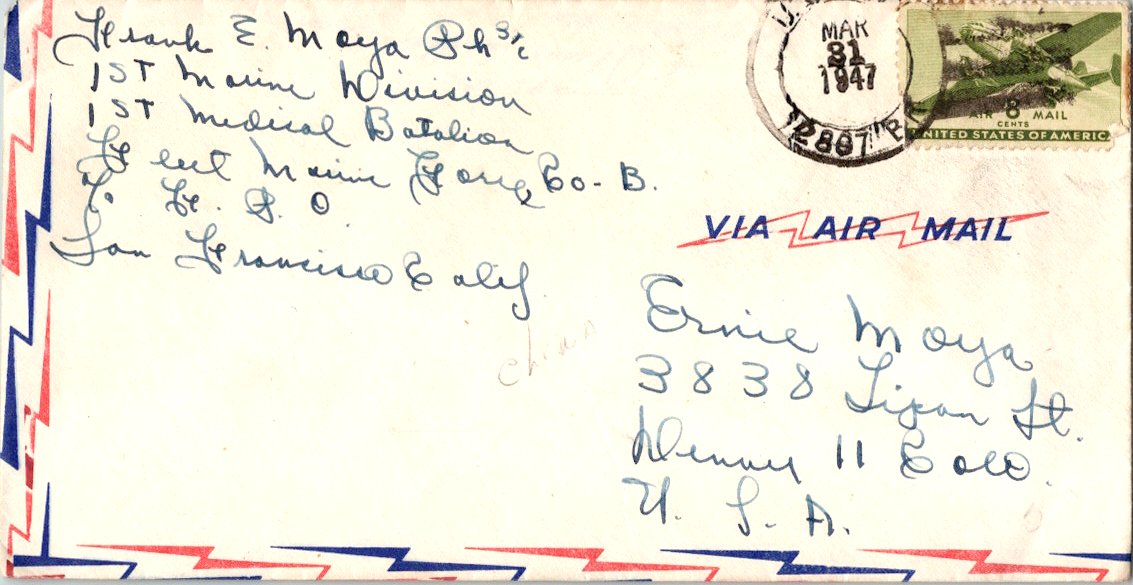 Frank E. Moya Ph 3/c
1ST Marine Division
1ST Medical Batalion
Fleet Marine Force, Co-B.
℅ F. P. O
San Francisco Calif
MAR
31
1947
12867
AIR 8 MAIL
CENTS
UNITED STATES OF AMERICA
VIA AIR MAIL
china
Ernie Moya
3838 Lipan St.
Denver 11 Colo.
U. S. A.